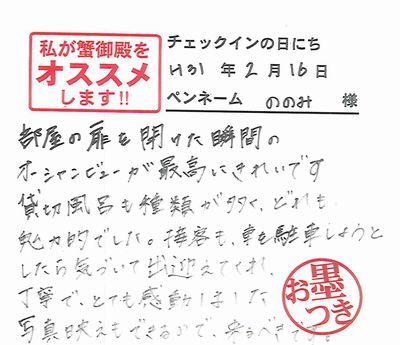 私が蟹御殿を
オススメ
します!!
チェックインの日にち
H31 年 2 月 16 日
ペンネーム ののみ 様
部屋の扉を開けた瞬間の
オーシャンビューが最高にきれいです
貸切風呂も種類が多く、どれも
魅力的でした。接客も、車を駐車しようと
したら気づいて出迎えてくれ、
丁寧で、とても感動しました
写真映えもできるので、来るべきです。
お墨つき